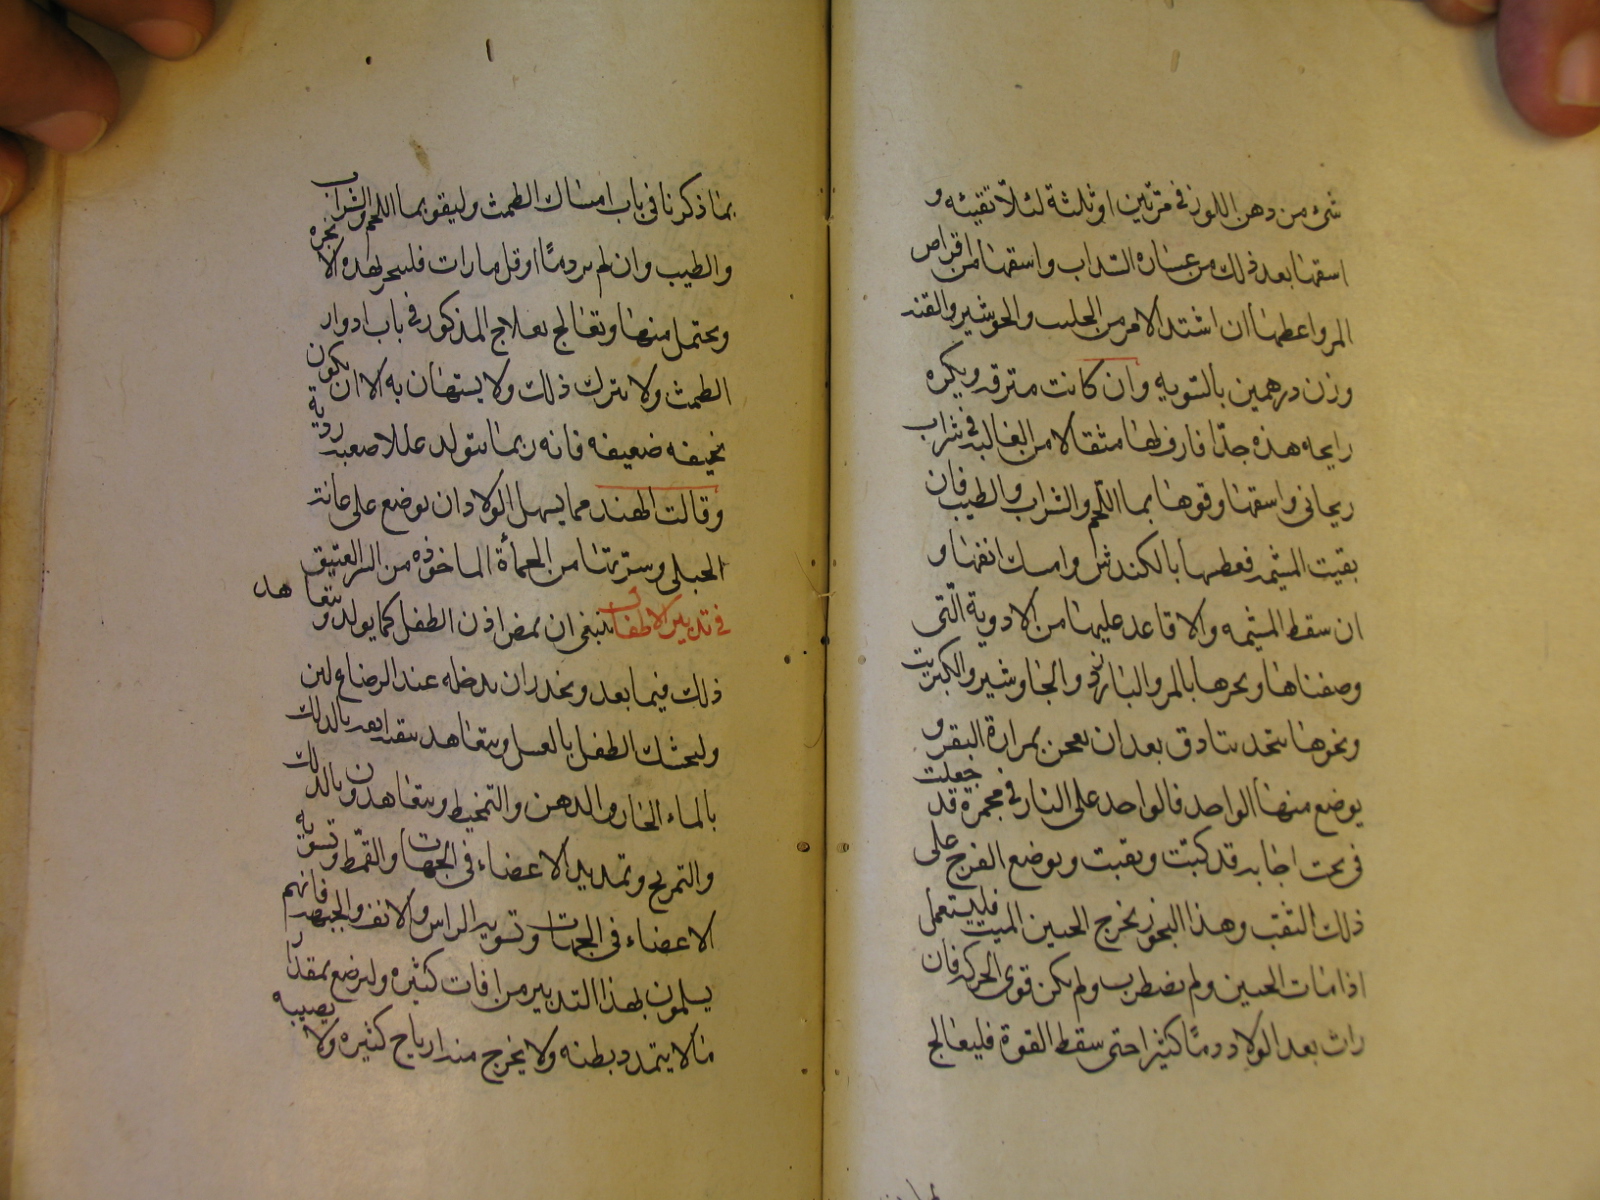 شئ من دهن اللوز في مرتين او ثلثة لئلا تقيئه و
اسقها بعد ذلك من عصاره السداب واسقها من اقراص
المر واعطها ان اشتد الامر من الحلتيت والجوشير والقند
وزن درهمين بالسويه وان كانت مترفه ويكره
رايحه هذه جدا فارفطها مثقالا من الغاليه في شراب
ريحاني واسقها وقوها بما اللحم والشراب والطيب فان
بقيت المشيمه فعطسها بالكندش وامسك انفها و
ان سقط المشيمه والا فاعد عليها من الادوية التي
وصفناها وبخرها بالمر والبارزد والجاوشير والكبريت
وبخرها بنادق بعد ان يعجن بمرارة البقر و
يوضع منها الواحد فالواحد على النار في مجمرة قد جعلت
تحت قد كبت وثقبت ويوضع الفرج على
ذلك الثقب وهذا البخور يخرج الجنين الميت فليستعمل
اذا مات الجنين ولم يضطرب ولم يكن قوى الحركه فان
رات بعد الولاد دما كثيرا حتى سقط القوة فليعالج
بما ذكرنا في باب امساك الطمث وليقو بما اللحم والشراب
والطيب وان لم تر دما او قل ما رات فليبخر بهذه الابخره
ويحتمل منها وتعالج بعلاج المذكور في باب ادوار
الطمث ولا يترك ذلك ولا يستهان به الا ان يكون
نحيفه ضعيفه فانه ربما يتولد عللا صعبه ردية
وقالت الهند مما يسهل الولاد ان يوضع على عانة
الحبلى وسرتها من الحمأة الماخوذه من البئر العتيق
في تدبير الاطفال ينبغي ان يمص اذن الطفل كما يولد ويتعاهد
ذلك فيما بعد ويحذر ان يدخله عند الرضاع لبن
وليحنك الطفل بالعسل ويتعاهد بعد بالدلك
بالماء الحار والدهن والتمخيط ويتعاهدون بالدلك
والتمريخ وتمديد الاعضاء في الجهات والقمط وتسوية
الاعضاء في الجهات وتسويه الراس والانف والجبهه فانهم
يسلمون بهذا التدبير من افات كثيره وليرضع بمقدار
ما لا يتمدد بطنه ولا يخرج منه ارياح كثيره ولا يصيبه